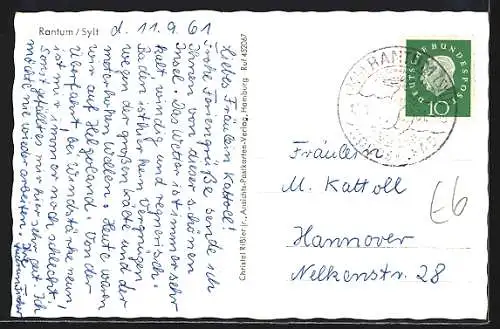 Rantum / Sylt
d. 11.9.61
Liebes Fräulein Kattoll!
Frohe Feriengrüße sende ich
Ihnen von dieser schönen
Insel. Das Wetter ist immer sehr
kalt windig und regnerisch.
Baden ist hier kein Vergnügen
wegen der großen Kälte und der
meterhohen Wellen. Heute waren
wir auf Helgoland. Von der
Überfahrt, bei Windstärke neun,
ist mir immer noch schlecht.
Sonst gefällt es mir hier sehr gut. Ich
möchte nie wieder arbeiten. Ihre
Christel Rißler jr., Ansichts-Postkarten-Verlag, Hamburg Ruf 452067
RANTUM
DEUTSCHE BUNDESPOST
10
Fräulein
M. Kattoll
Hannover
Nelkenstr. 28
E6